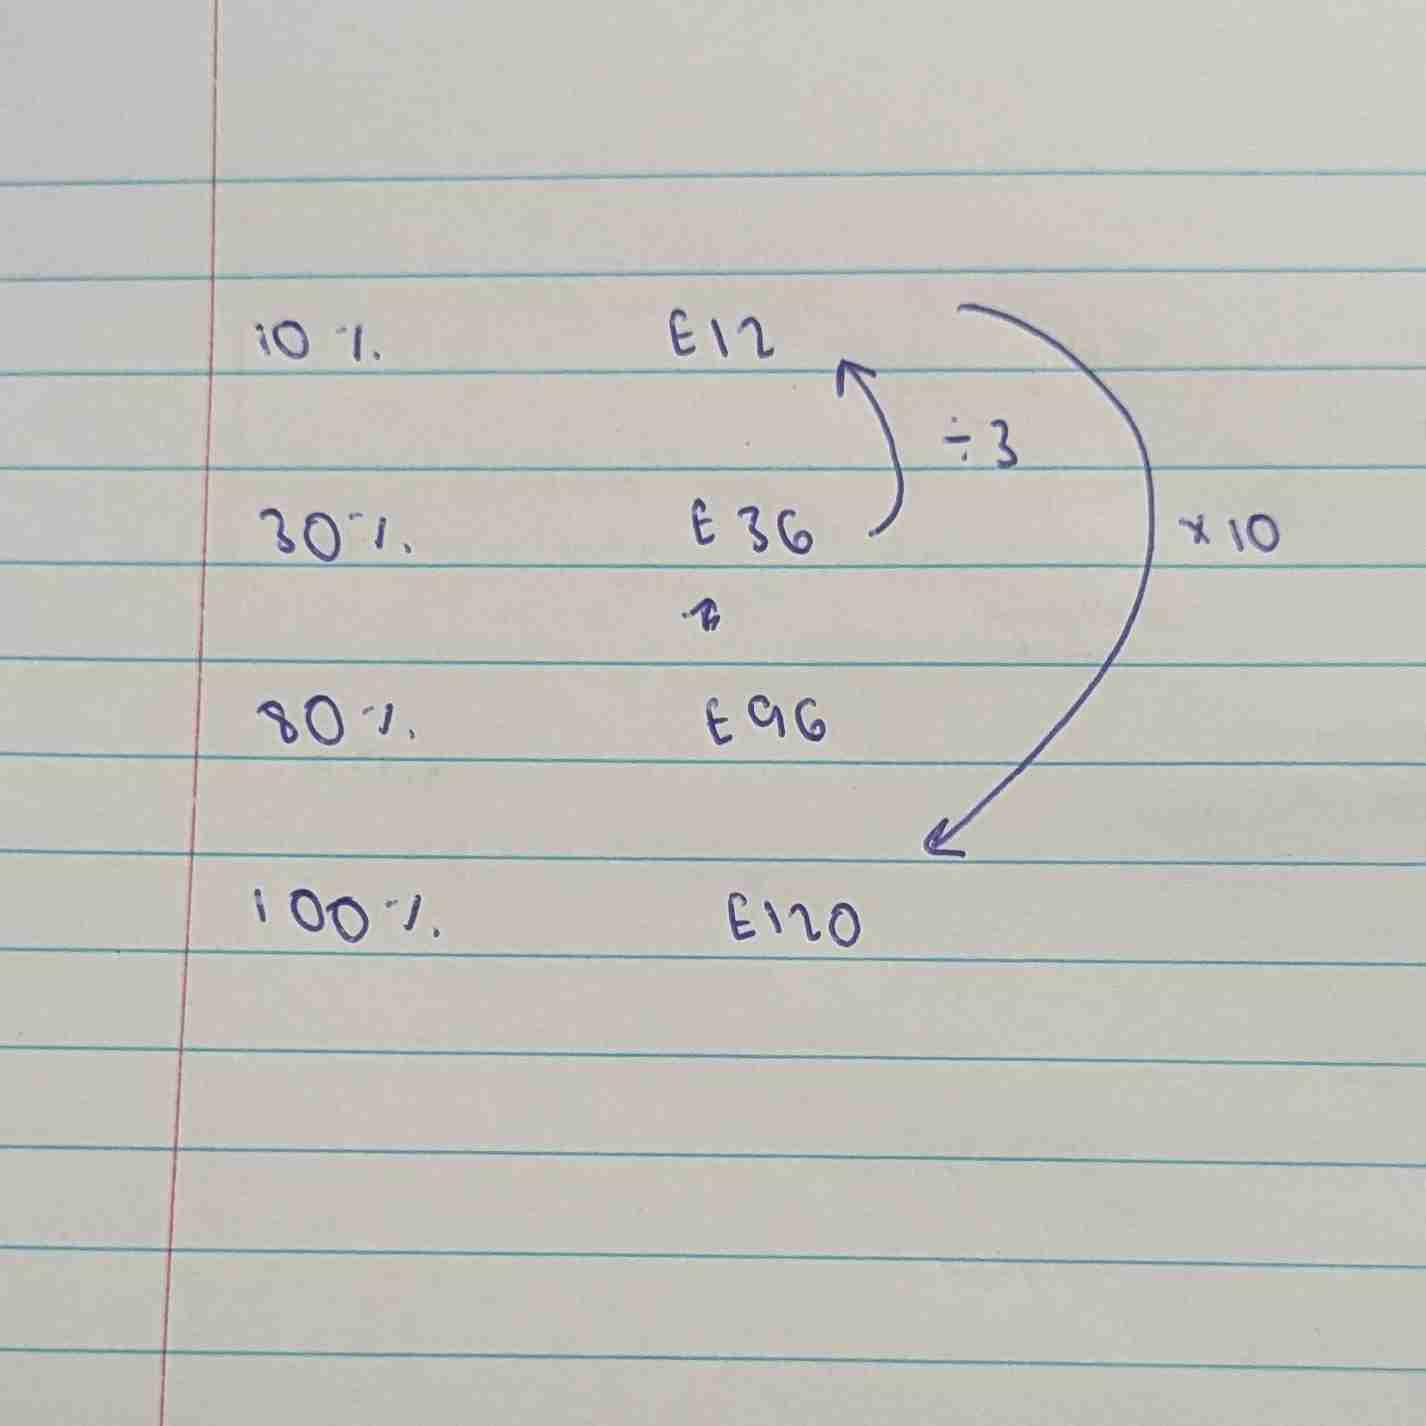 10% E12
÷3
30% E36 ×10
80% E96
100% E120